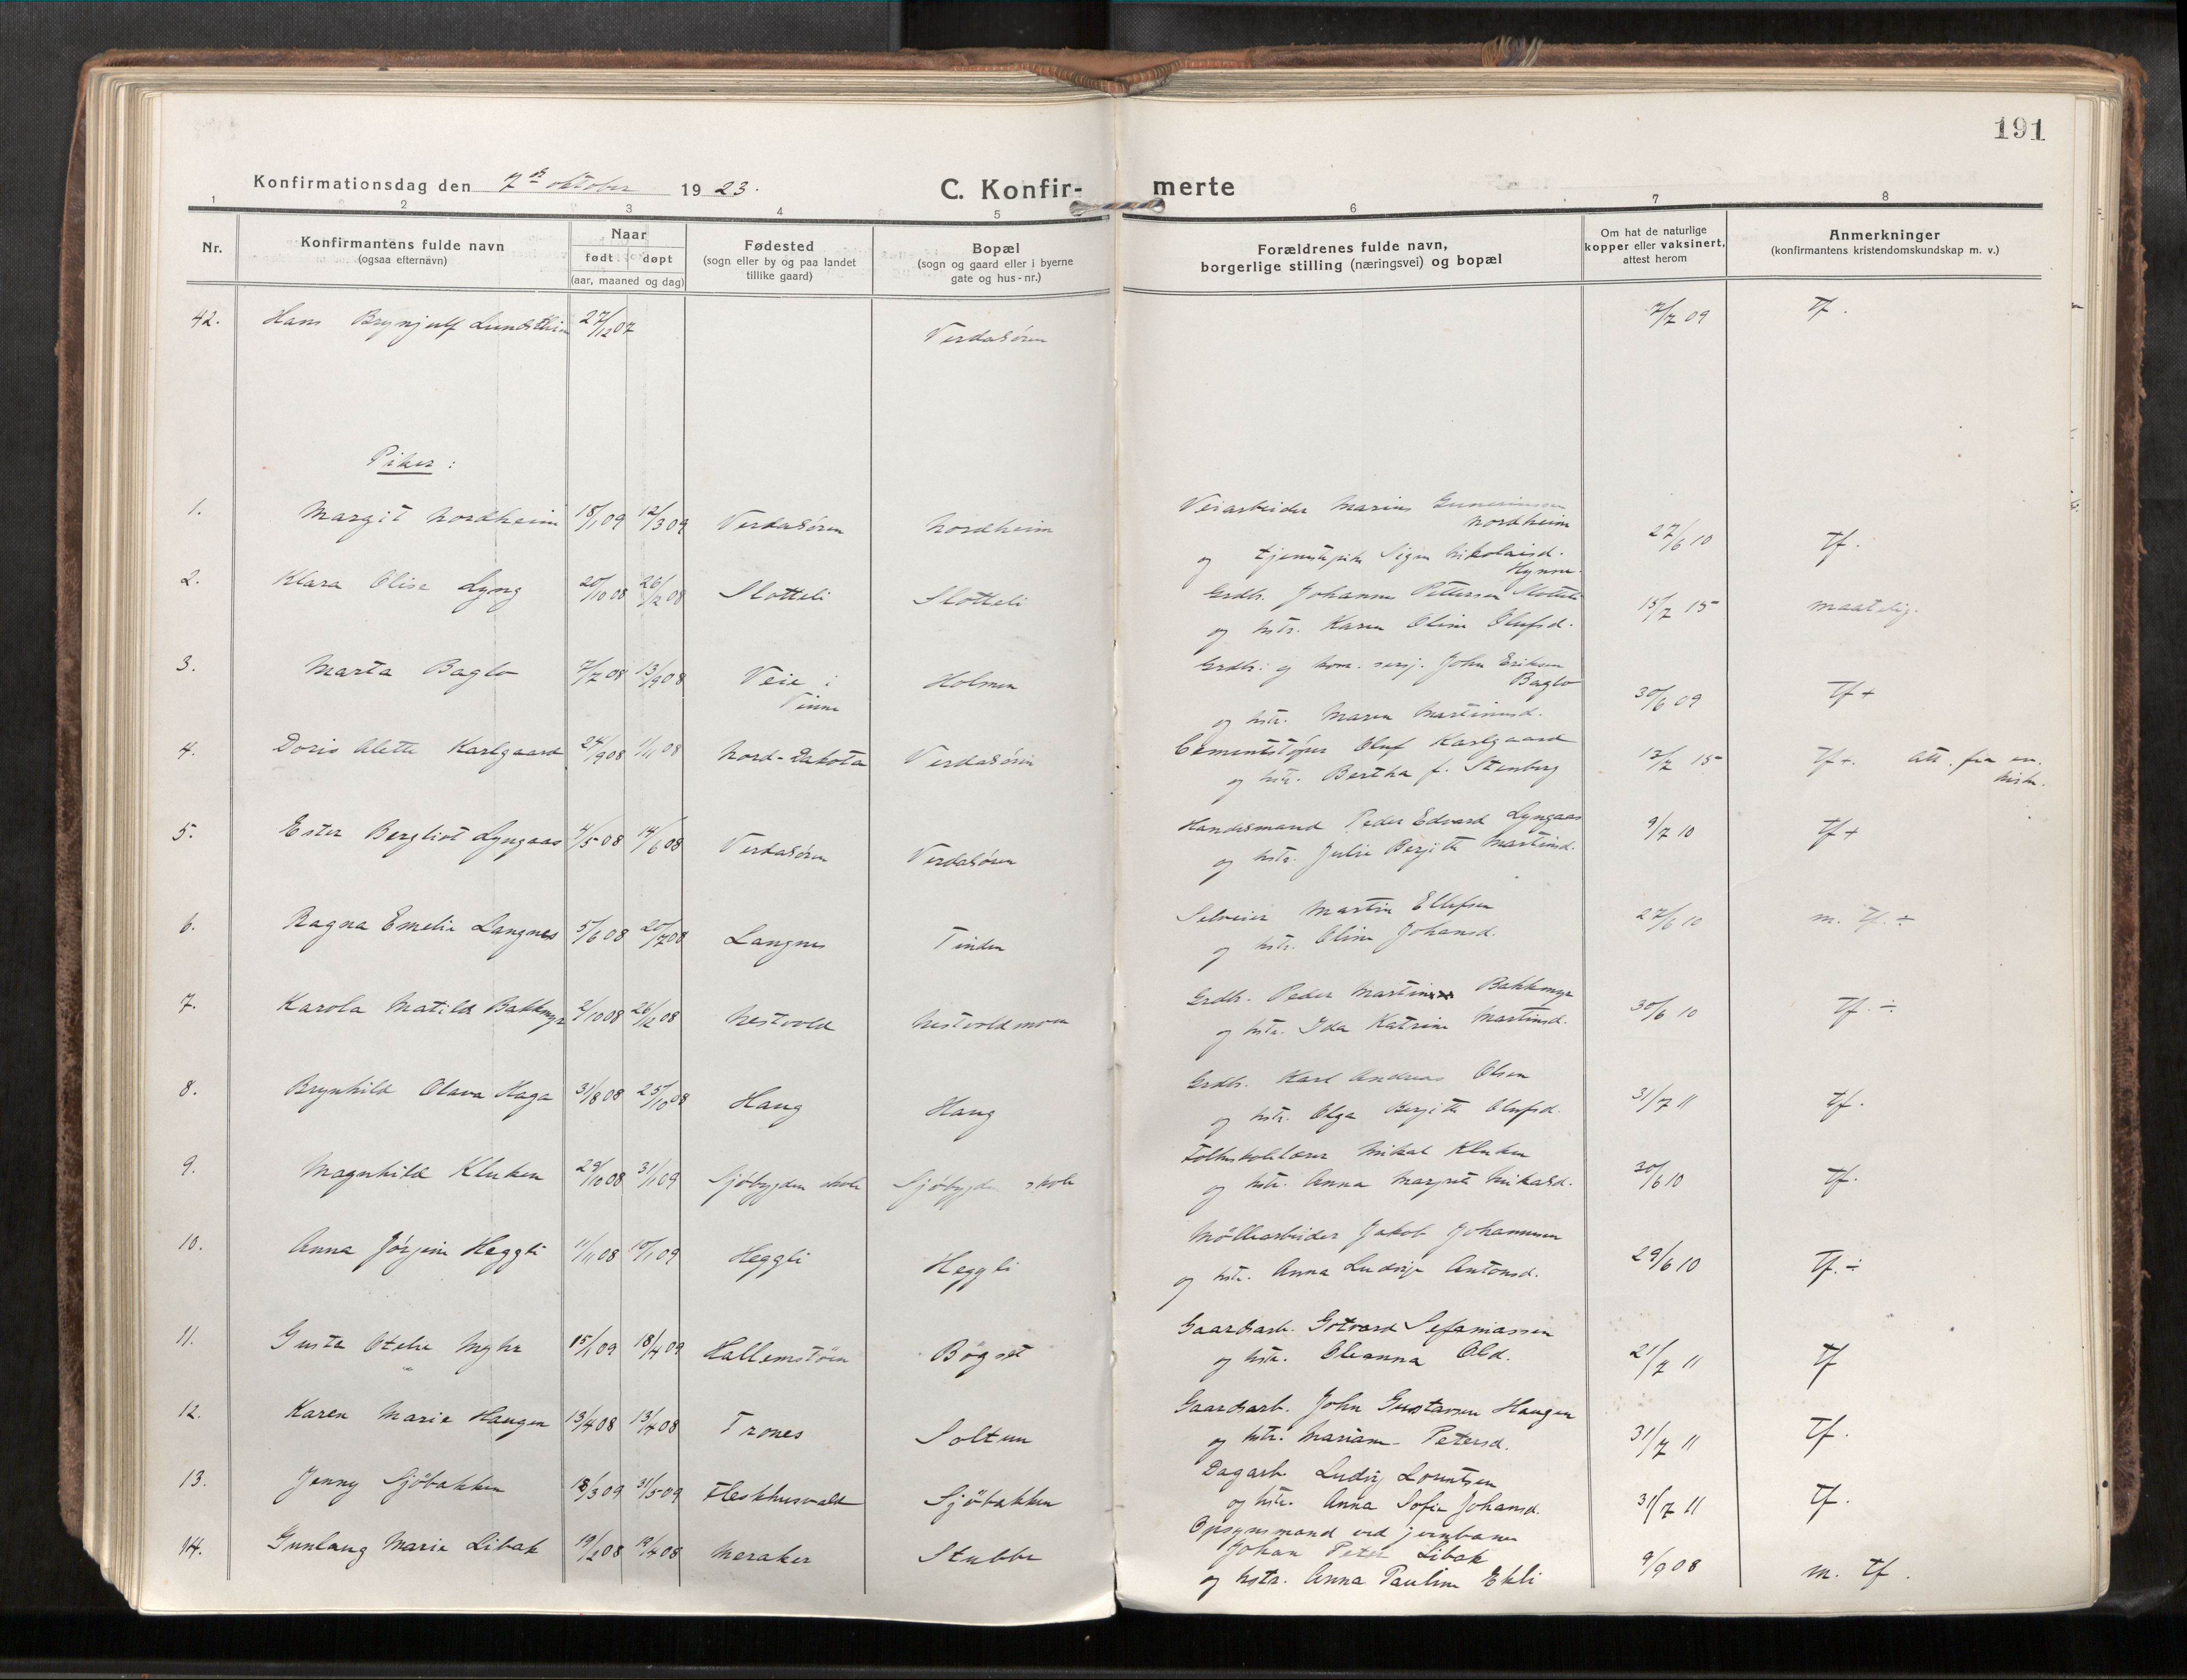 191
Konfirmationsdag den 7de oktober 1923.
C. Konfirmerte
1 2 3 4 5 6 7 8
Nr.
Konfirmantens fulde navn
(ogsaa efternavn)
Naar
født døpt
(aar, maaned og dag)
Fødested
(sogn eller by og paa landet
tillike gaard)
Bopæl
(sogn og gaard eller i byerne
gate og hus-nr.)
Forældrenes fulde navn,
borgerlige stilling (næringsvei) og bopæl
Om hat de naturlige
kopper eller vaksinert,
attest herom
Anmerkninger
(konfirmantens kristendomskundskap m. v.)
42. Hans Brynjulf 27/12 07 Verdalsören 7/7 09 Tf.
Piker:
1. Margit Nordheim 18/1 09 12/3 09 Verdalsören Nordheim
Veiarbeider Marius
Nordheim
og tjenestepike Signe Nikolaisd.
Hynne. 27/6 10 Tf.
2. Klara Olise Lyng 20/10 08 26/12 08 Slotteli Slotteli
Grdbr. Johannes Pettersen Slotteli
og hstr. Karen Oline Olufsd. 15/7 15 maatelig.
3. Marta Baglo 7/7 08 13/9 08 Veie i
Vinne Holmen
Grdbr. og kom. serj. John Eriksen
Baglo
og hstr. Maren Martinusd. 30/6 09 Tf +
4. Doris Alette Karlgaard 24/9 08 1/11 08 Nord-Dakota Verdalsören
Cementstöper Oluf Karlgaard
og hstr. Bertha f. Stenberg 13/7 15 Tf +. att. fra
5. Ester Bergliot Lyngaas 4/5 08 14/6 08 Verdalsören Verdalsören
Handelsmand Peder Edvard Lyngaas
og hstr. Julie Berjitte Martinsd. 9/7 10 Tf +
6. Ragna Emelie Langnes 5/6 08 20/7 08 Langnes Tinden
Selveier Martin Ellefsen
og hstr. Oline Johansd. 27/6 10 m. Tf. ÷
7. Karola Matilde Bakkmyr 2/10 08 26/12 08 Nestvold Nestvoldmoen
Grdbr. Peder Martin Bakkmyr
og hstr. Ida Katrine Martinsd. 30/6 10 Tf. ÷
8. Brynhild Olava Haga 31/8 08 25/10 08 Haug Haug
Grdbr. Karl Andreas Olsen
og hstr. Olga Berjitte Olufsd. 31/7 11 Tf.
9. Magnhild Kluken 29/10 08 31/1 09 Sjöbygden skole Sjöbygden skole
Folkeskolelærer Mikal Kluken
og hstr. Anna Margrete Mikalsd. 30/6 10 Tf.
10. Anna Jörgine Heggli 11/11 08 10/1 09 Heggli Heggli
Möllearbeider Jakob Johannesen
og hstr. Anna Ludvije Antonsd. 29/6 10 Tf. ÷
11. Gusta Otelie Myhr 15/1 09 18/4 09 Hallemstöen Bögset
Gaardsarb. Gotvard Sefaniassen
og hstr. Oleanna Olsd. 21/7 11 Tf
12. Karen Marie Haugen 13/4 08 13/4 08 Trones Soltun
Gaardsarb. John Gustavsen Haugen
og hstr. Mariane Petersd. 31/7 11 Tf.
13. Jenny Sjöbakken 18/3 09 31/5 09 Fleskhusvald Sjöbakken
Dagarb. Ludvig Lorntsen
og hstr. Anna Sofie Johansd. 31/7 11 Tf.
14. Gunlaug Marie Libak 19/2 08 19/4 08 Meraker Stubbe
Opsynsmand ved jernbanen
Johan Peter Libak
og hstr. Anna Pauline Ekli 9/9 08 m. Tf.